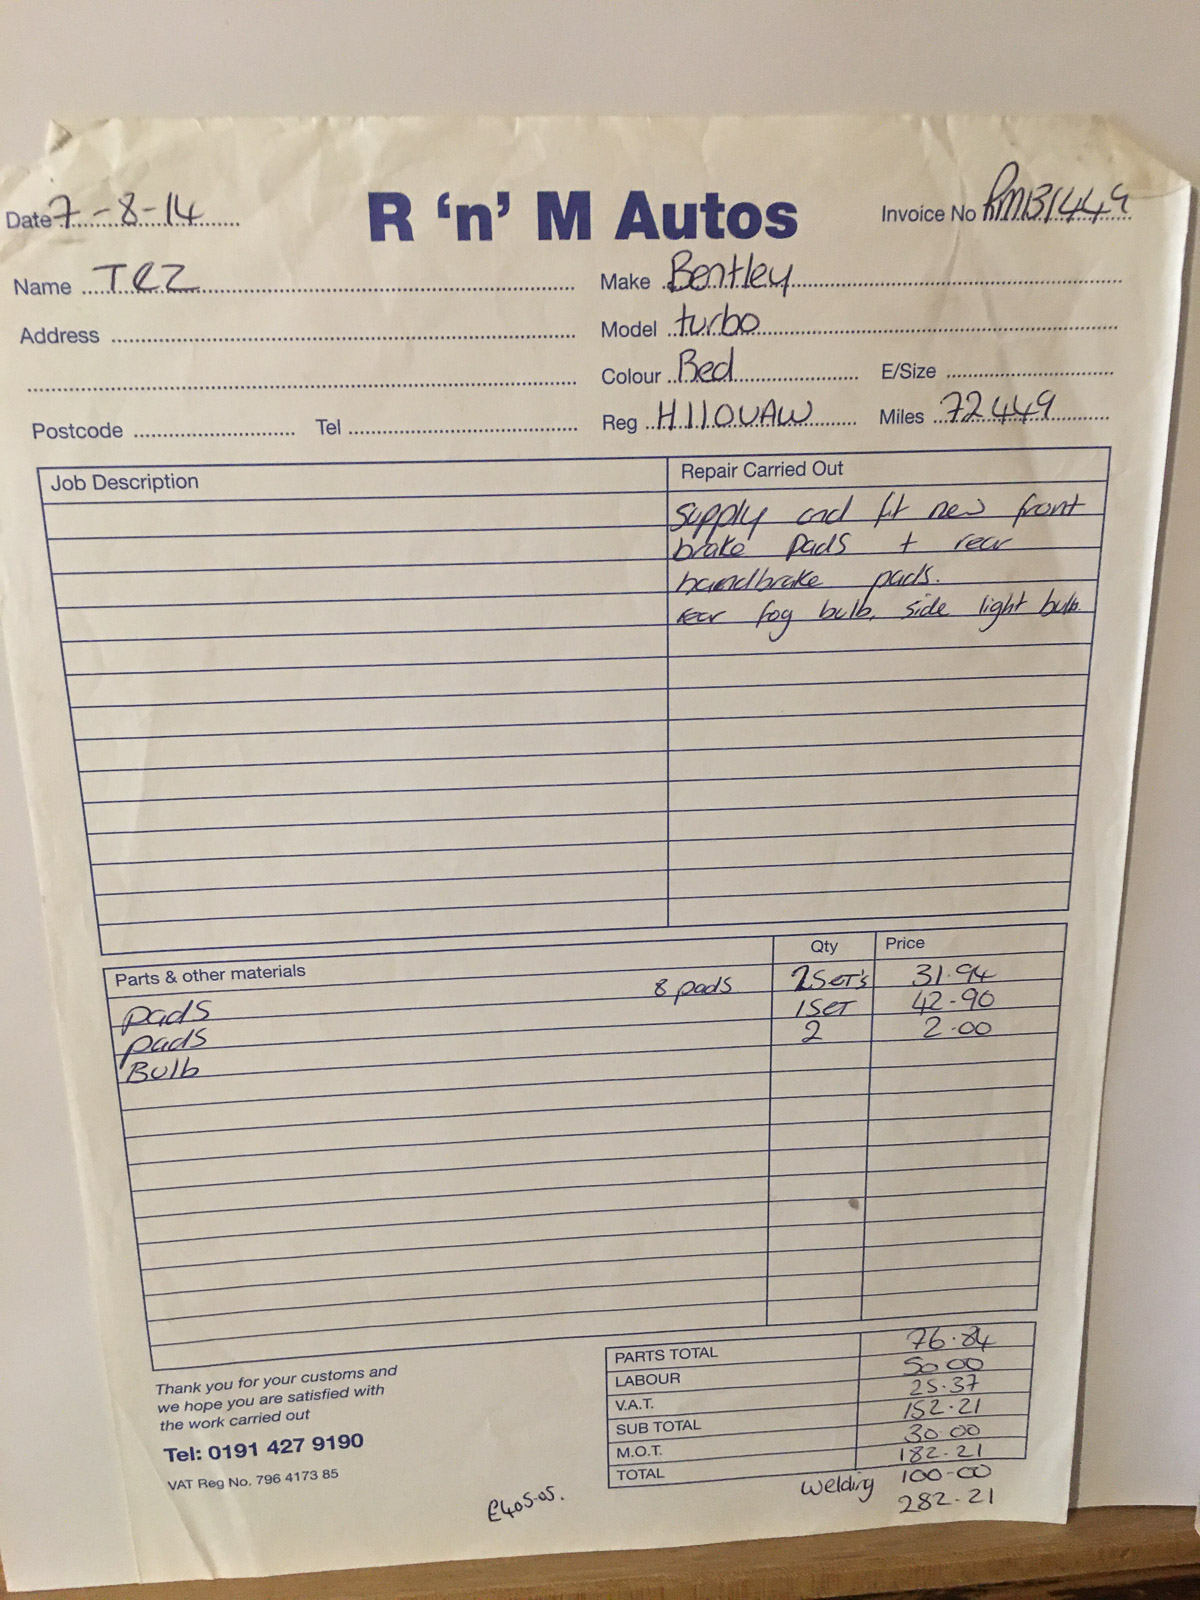 R 'n' M Autos
Date 7-8-14
Invoice No RMB1449
Name TRZ
Make Bentley
Address
Model turbo
Colour Red E/Size
Postcode Tel
Reg H110UAW Miles 72449
Job Description
Repair Carried Out
supply and fit new front
brake pads + rear
handbrake pads.
rear fog bulb, side light bulb.
Parts & other materials Qty Price
pads 8 pads 2 SET's 31.94
pads 1 SET 42-90
Bulb 2 2.00
PARTS TOTAL 76.84
LABOUR 50 00
V.A.T. 25.37
SUB TOTAL 152.21
M.O.T. 30 00
TOTAL 182.21
welding 100-00
282.21
Thank you for your customs and
we hope you are satisfied with
the work carried out
Tel: 0191 427 9190
VAT Reg No. 796 4173 85
£405-05.